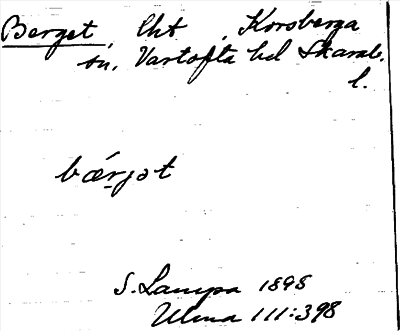 Berget, lht, Korsberga
sn, Vartofta hd Skarab.
l.
bǽrjət
S. Lampa 1898
Ulma 111:398